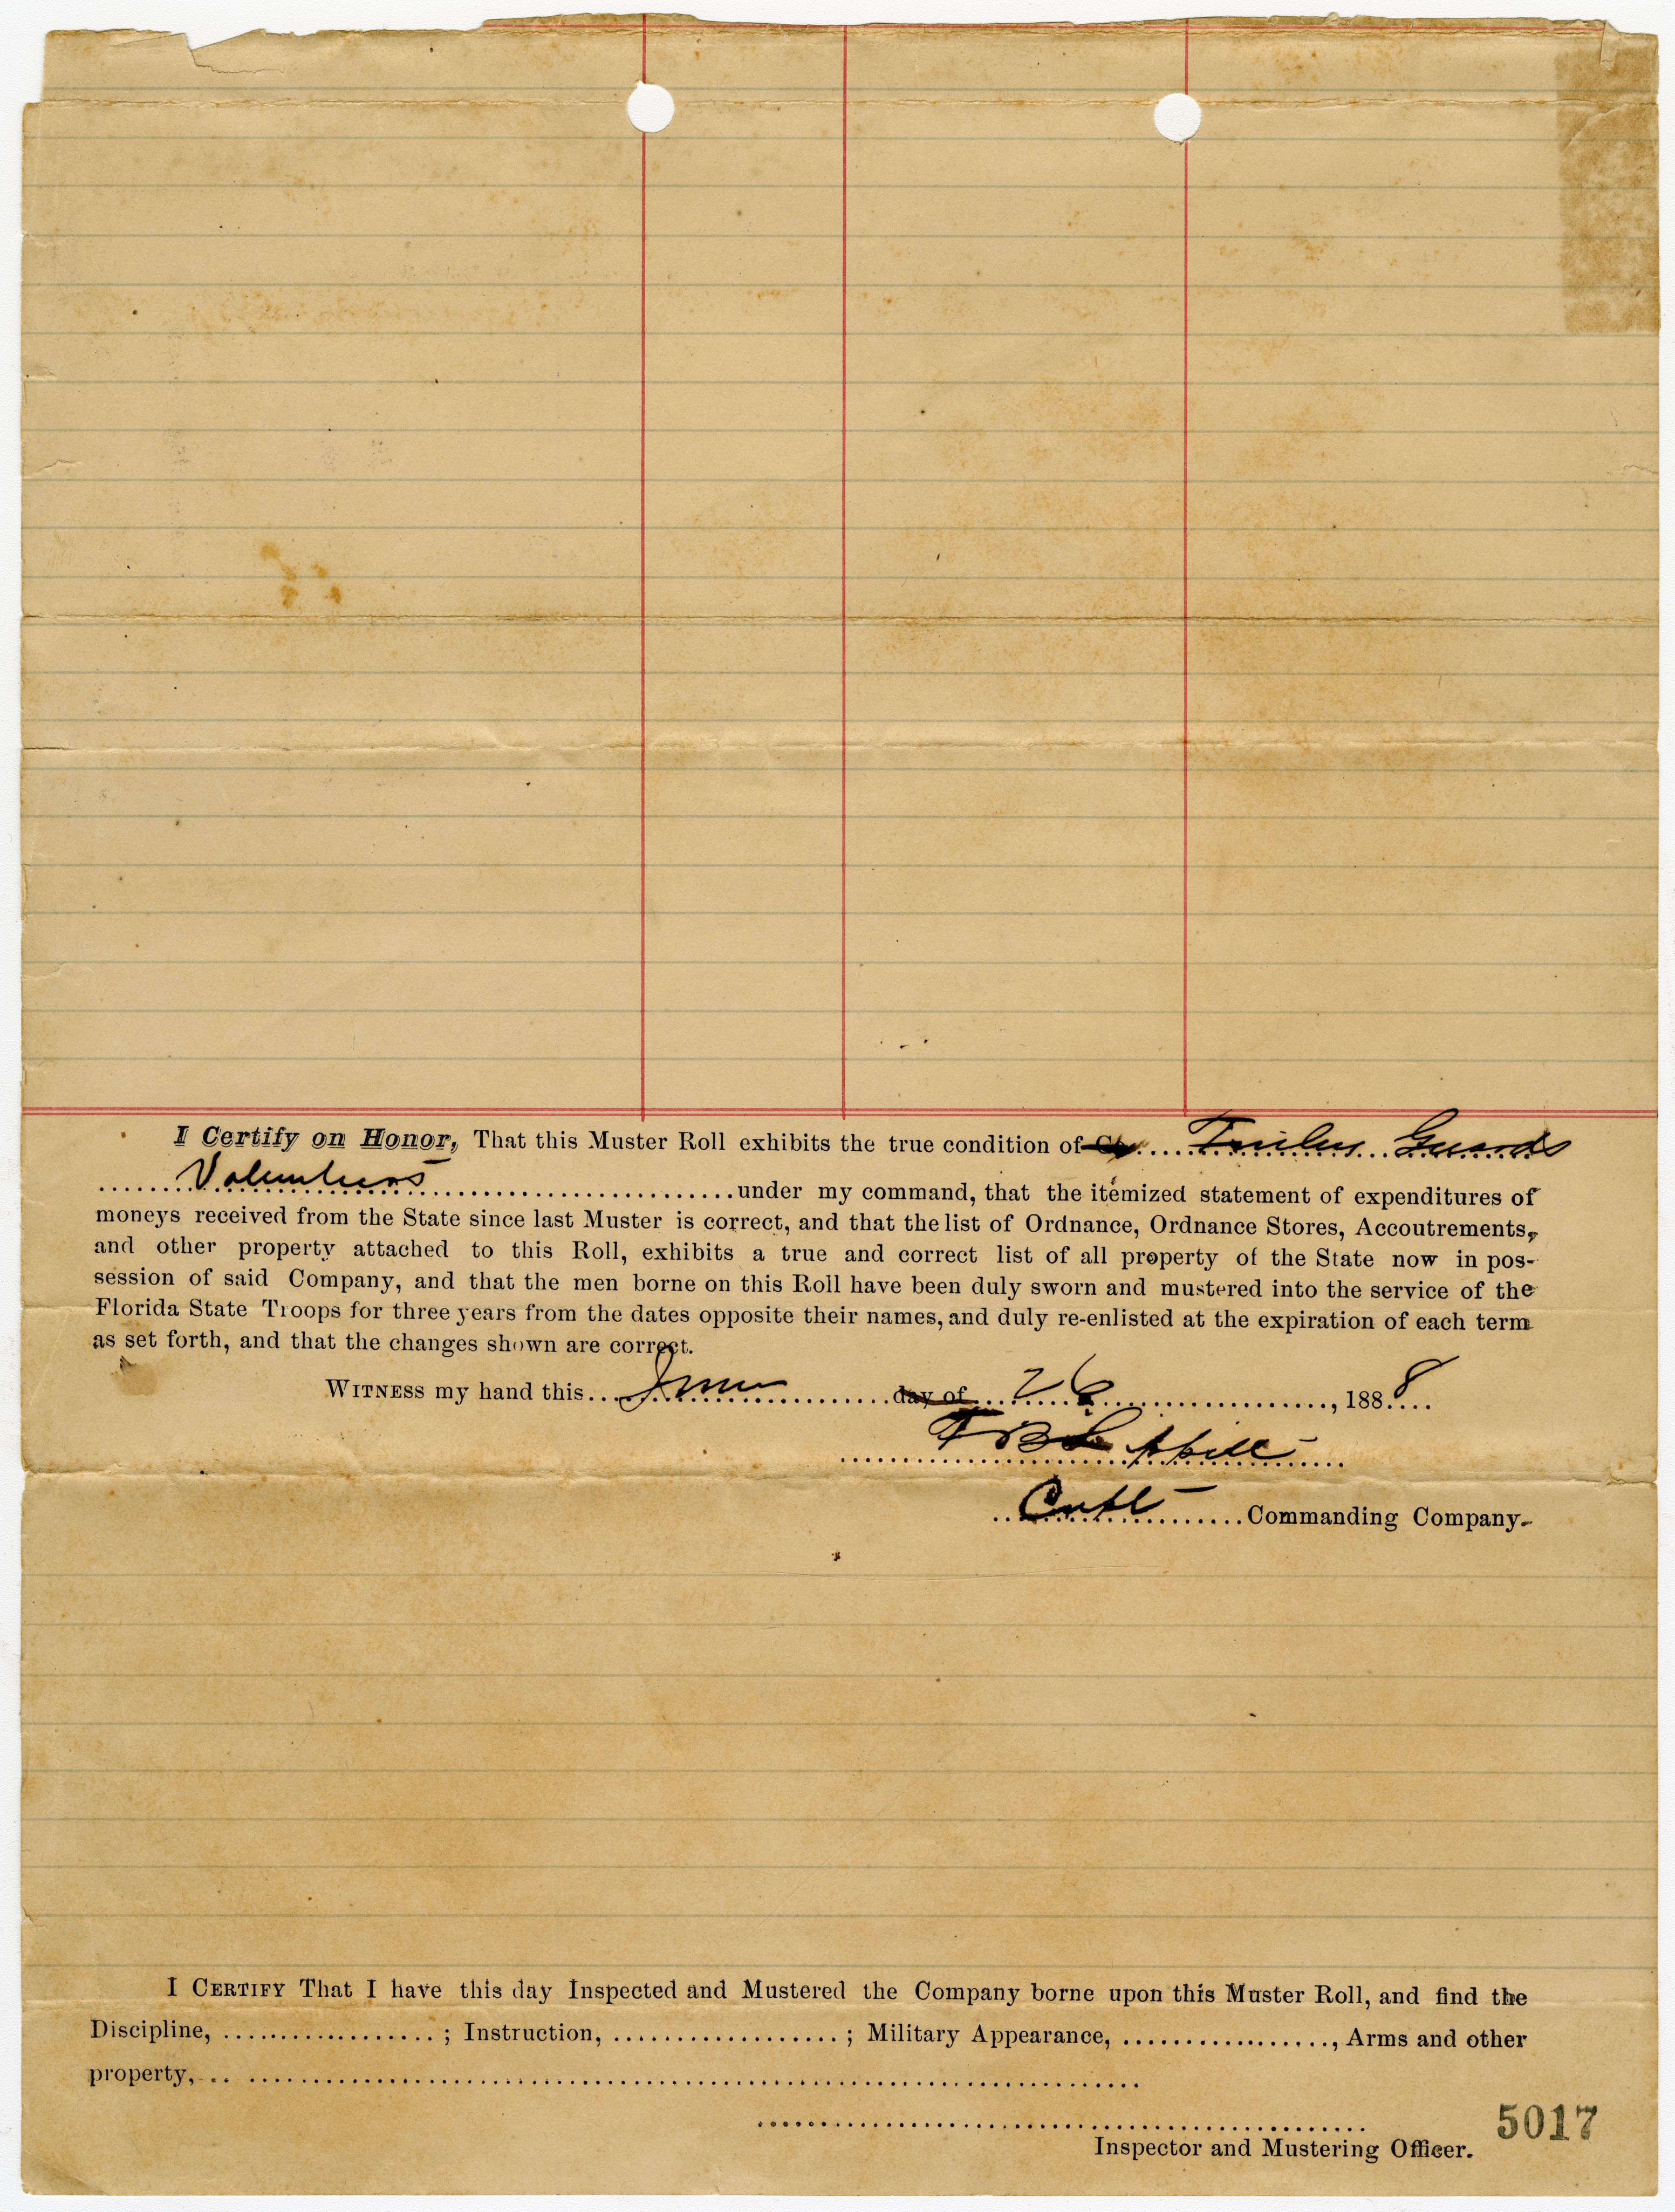 I Certify on Honor, That this Muster Roll exhibits the true condition of Co. .... Guards
Volunteers under my command, that the itemized statement of expenditures of
moneys received from the State since last Muster is correct, and that the list of Ordnance, Ordnance Stores, Accoutrements,
and other property attached to this Roll, exhibits a true and correct list of all property of the State now in pos-
session of said Company, and that the men borne on this Roll have been duly sworn and mustered into the service of the
Florida State Troops for three years from the dates opposite their names, and duly re-enlisted at the expiration of each term
as set forth, and that the changes shown are correct.
WITNESS my hand this....June....day of....26...., 1888....
Capt....Commanding Company.
I CERTIFY That I have this day Inspected and Mustered the Company borne upon this Muster Roll, and find the
Discipline, ..................; Instruction, ..................; Military Appearance, .................., Arms and other
property, ....................
Inspector and Mustering Officer.
5017